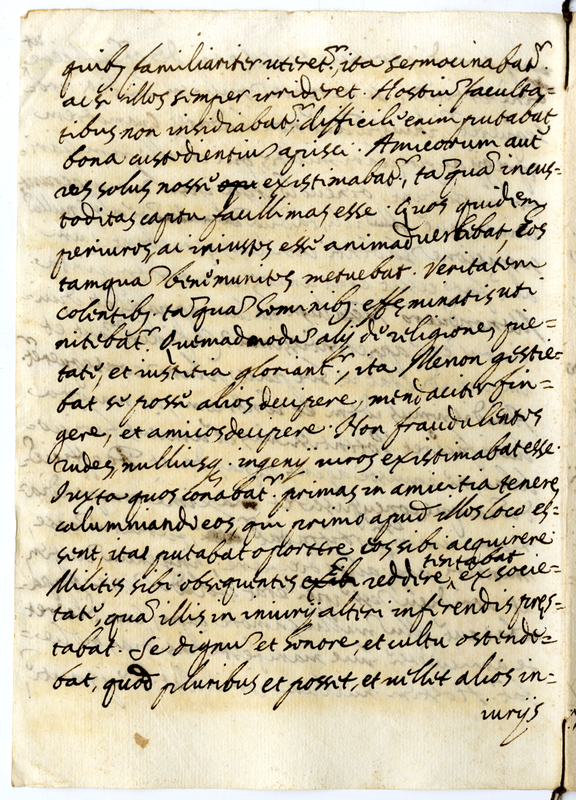 quibȝ familiariter uteret̃, ita sermocinabat̃
ac si illos semper irrideret. Hostiũ faculta=
tibus non insidiabat̃, difficile enim putabat
bona custodientiũ apisci. Amicorum aut̃
res solus nosse existimabat̃, tãquã incus=
toditas captu facillimas esse. Quos quidem
periuros, ac iniustos esse animadvertebat, Eos
tamquã bene munitos metuebat. Veritatem
colentibȝ tãquã hominibȝ effeminatis uti
nitebat̃. Quemadmodũ alij de religione, pie=
tate, et iustitia gloriant̃, ita Menon gestie=
bat se posse alios decipere, mendaciter fin=
gere, et amicos decipere. Non fraudulentos
rudes, nulliusq. ingenij uiros existimabat esse.
Iuxta quos conabat̃ primas in amicitia tenere
calumniando eos, qui primo apud illos loco es=
sent, ita putabat oportere eos sibi acquirere
Milites sibi obsequentes reddere tentabat, ex socie=
tate, quã illis in iniurijs alteri inferendis pręs=
tabat. Se dignũ et honore, et cultu ostende=
bat, quod pluribus et posset, et uellet alios in=
iurijs